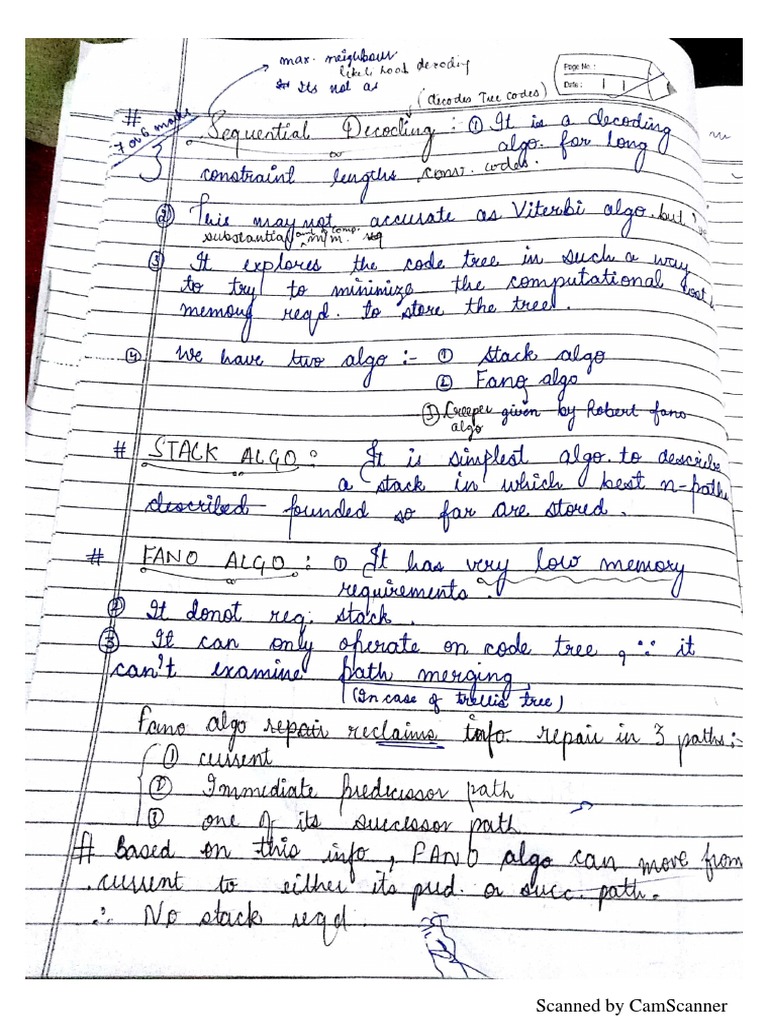 max. neighbour
likelihood decoding
Its not as
Page No :
Date :
(decodes Tree codes)
# 7 or 6 marks
3
Sequential Decoding : ① It is a decoding
algo. for long
constraint lengths conv. codes.
② This may not accurate as Viterbi algo. but
substantial amt of comp. m/m.
③ It explores the code tree in such a way
to try to minimize the computational cost &
memory reqd. to store the tree.
④ We have two algo :- ① Stack algo
② Fano algo
③ Creeper given by Robert fano
algo
# STACK ALGO : It is simplest algo. to describe
a stack in which best n-paths
described founded so far are stored.
# FANO ALGO : ① It has very low memory
requirements.
② It donot req. stack.
③ It can only operate on code tree, ∵ it
can't examine path merging.
(In case of trellis tree)
Fano algo repair reclaims info. repair in 3 paths :-
① current
② Immediate predecissor path
③ one of its successor path
# Based on this info, FANO algo can move from
current to either its pred. or succ. path.
∴ No stack reqd.
Scanned by CamScanner